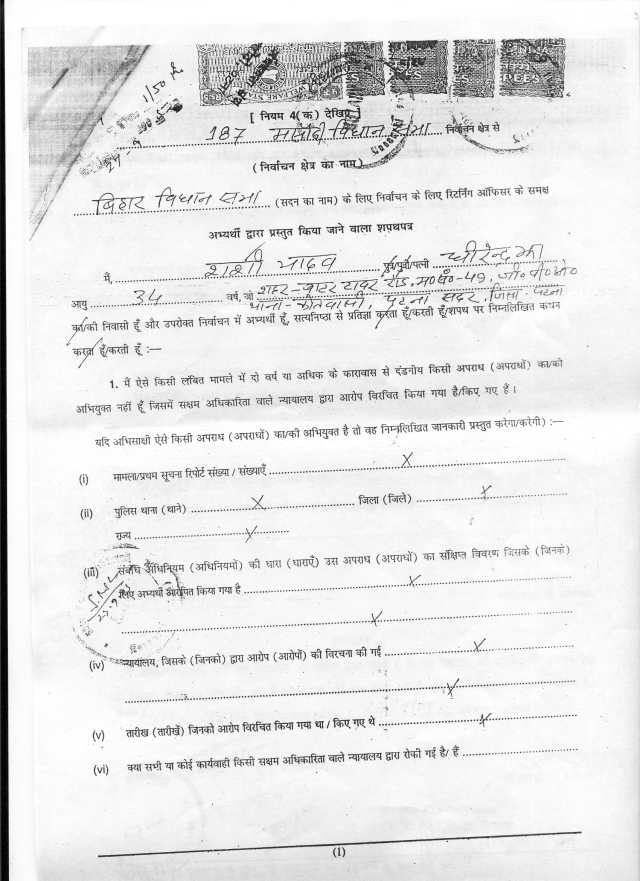 [ नियम 4(क) देखिए ]
187 मसौढ़ी विधान सभा निर्वाचन क्षेत्र से
(निर्वाचन क्षेत्र का नाम)
बिहार विधान सभा (सदन का नाम) के लिए निर्वाचन के लिए रिटर्निंग ऑफिसर के समक्ष
अभ्यर्थी द्वारा प्रस्तुत किया जाने वाला शपथपत्र
मैं, शशी यादव पुत्र/पुत्री/पत्नी धीरेन्द्र झा
आयु 34 वर्ष, जो शहर-वाटर टावर रोड, म०सं०-49, जी०पी०ओ०
थाना-कोतवाली, पटना सदर, जिला-पटना
का/की निवासी हूँ और उपरोक्त निर्वाचन में अभ्यर्थी हूँ, सत्यनिष्ठा से प्रतिज्ञा करता हूँ/करती हूँ/शपथ पर निम्नलिखित कथन
करता हूँ/करती हूँ :—
1. मैं ऐसे किसी लंबित मामले में दो वर्ष या अधिक के कारावास से दंडनीय किसी अपराध (अपराधों) का/की
अभियुक्त नहीं हूँ जिसमें सक्षम अधिकारिता वाले न्यायालय द्वारा आरोप विरचित किया गया है/किए गए हैं ।
यदि अभिसाक्षी ऐसे किसी अपराध (अपराधों) का/की अभियुक्त है तो वह निम्नलिखित जानकारी प्रस्तुत करेगा/करेगी) :—
(i) मामला/प्रथम सूचना रिपोर्ट संख्या / संख्याएँ X
(ii) पुलिस थाना (थाने) X जिला (जिले) X
राज्य X
(iii) संबंधि अधिनियम (अधिनियमों) की धारा (धाराएँ) उस अपराध (अपराधों) का संक्षिप्त विवरण जिसके (जिनके)
लिए अभ्यर्थी आरोपित किया गया है X
X
(iv) न्यायालय, जिसके (जिनको) द्वारा आरोप (आरोपों) की विरचना की गई X
X
(v) तारीख (तारीखें) जिनको आरोप विरचित किया गया था / किए गए थे X
(vi) क्या सभी या कोई कार्यवाही किसी सक्षम अधिकारिता वाले न्यायालय द्वारा रोकी गई है/ हैं
(1)